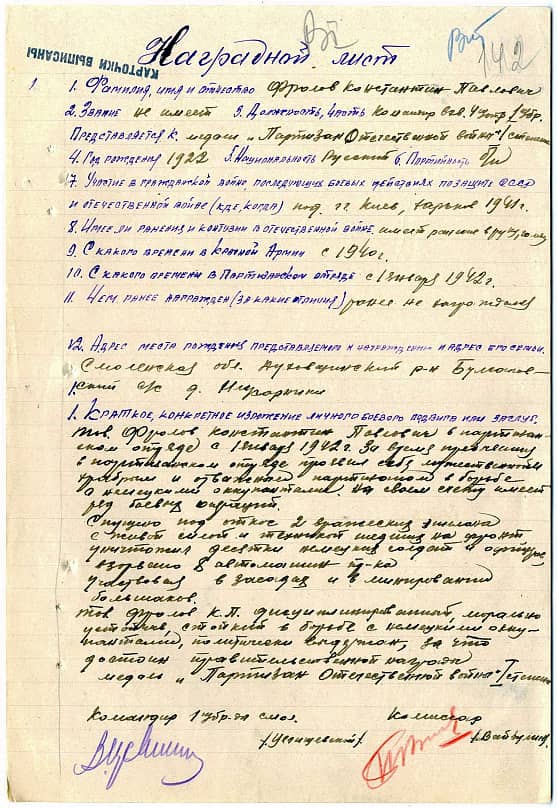 КАРТОЧКИ ВЫПИСАНЫ
142
Наградной лист
1. Фамилия, имя и отчество Фролов Константин Павлович
2. Звание не имеет 3. Должность, часть Командир взв. 4 1 Убр.
Представляется к медали "Партизан Отечественной войны" I степени
4. Год рождения 1922 5. Национальность Русский 6. Партийность
7. Участие в гражданской войне, последующих боевых действиях по защите СССР
и отечественной войне (где, когда) под г.г. Киев, Харьков 1941 г.
8. Имеет ли ранения и контузии в отечественной войне, имеет ранение в руку,
9. С какого времени в Красной Армии с 1940 г.
10. С какого времени в Партизанском отряде с 1 января 1942 г.
11. Чем ранее награжден (за какие отличия) ранее не награждался
12. Адрес места рождения представляемого к награждению и адрес его семьи.
Смоленская обл. Духовщинский р-н
с/с д.
1. Краткое, конкретное изложение личного боевого подвига или заслуг.
Тов. Фролов Константин Павлович в партизан-
ском отряде с 1 января 1942 г. За время пребывания
в партизанском отряде проявил себя мужественным
храбрым и отважным партизаном в борьбе
с немецкими оккупантами. На своем счету имеет
ряд боевых операций.
Спущено под откос 2 вражеских эшелона
с живой силой и техникой шедших на фронт
уничтожил десятки немецких солдат и офицеров,
взорвано 8 автомашин пр-ка
участвовал в засадах и в минировании
большаков.
Тов. Фролов К.П. дисциплинированный, морально
устойчив, стойкий в борьбе с немецкими окку-
пантами, политически выдержан, за что
достоин правительственной награды
медаль "Партизан Отечественной войны" I степени
Командир 1 Убр-ды смол. Комиссар